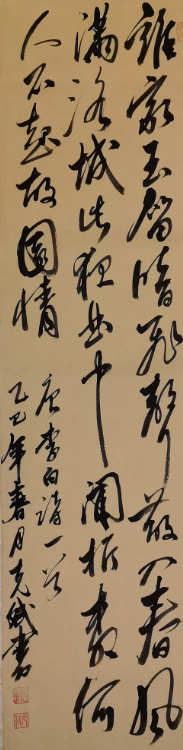 誰家玉笛暗飛聲散入春風
滿洛城此夜曲中聞折柳何
人不起故園情
唐李白詩一首
乙巳年春月克斌書